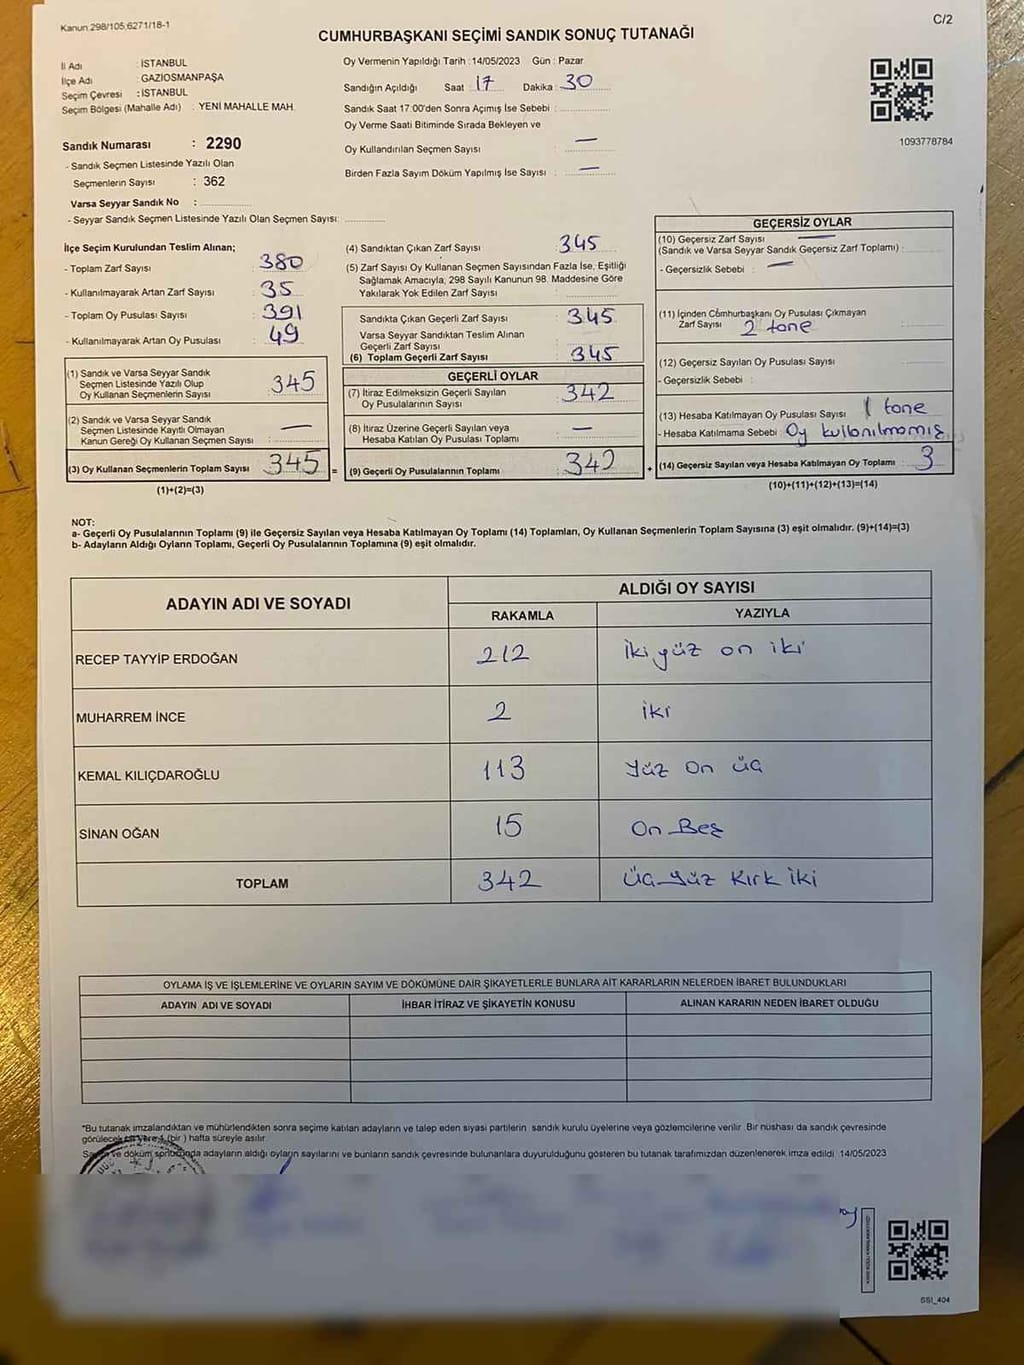 Kanun 298/105;6271/18-1
C/2
CUMHURBAŞKANI SEÇİMİ SANDIK SONUÇ TUTANAĞI
İl Adı : İSTANBUL
İlçe Adı : GAZİOSMANPAŞA
Seçim Çevresi : İSTANBUL
Seçim Bölgesi (Mahalle Adı) : YENİ MAHALLE MAH.
Sandık Numarası : 2290
- Sandık Seçmen Listesinde Yazılı Olan
Seçmenlerin Sayısı : 362
Varsa Seyyar Sandık No :
- Seyyar Sandık Seçmen Listesinde Yazılı Olan Seçmen Sayısı:
Oy Vermenin Yapıldığı Tarih : 14/05/2023 Gün : Pazar
Sandığın Açıldığı Saat : 17 Dakika : 30
Sandık Saat 17:00'den Sonra Açımış İse Sebebi :
Oy Verme Saati Bitiminde Sırada Bekleyen ve
Oy Kullandırılan Seçmen Sayısı : —
Birden Fazla Sayım Döküm Yapılmış İse Sayısı : —
1093778784
İlçe Seçim Kurulundan Teslim Alınan;
- Toplam Zarf Sayısı : 380
- Kullanılmayarak Artan Zarf Sayısı : 35
- Toplam Oy Pusulası Sayısı : 391
- Kullanılmayarak Artan Oy Pusulası : 49
(1) Sandık ve Varsa Seyyar Sandık
Seçmen Listesinde Yazılı Olup
Oy Kullanan Seçmenlerin Sayısı : 345
(2) Sandık ve Varsa Seyyar Sandık
Seçmen Listesinde Kayıtlı Olmayan
Kanun Gereği Oy Kullanan Seçmen Sayısı : —
(3) Oy Kullanan Seçmenlerin Toplam Sayısı : 345 =
(1)+(2)=(3)
(4) Sandıktan Çıkan Zarf Sayısı : 345
(5) Zarf Sayısı Oy Kullanan Seçmen Sayısından Fazla İse, Eşitliği
Sağlamak Amacıyla, 298 Sayılı Kanunun 98. Maddesine Göre
Yakılarak Yok Edilen Zarf Sayısı :
Sandıkta Çıkan Geçerli Zarf Sayısı : 345
Varsa Seyyar Sandıktan Teslim Alınan
Geçerli Zarf Sayısı :
(6) Toplam Geçerli Zarf Sayısı : 345
GEÇERLİ OYLAR
(7) İtiraz Edilmeksizin Geçerli Sayılan
Oy Pusulalarının Sayısı : 342
(8) İtiraz Üzerine Geçerli Sayılan veya
Hesaba Katılan Oy Pusulası Toplamı : —
(9) Geçerli Oy Pusulalarının Toplamı : 342 +
GEÇERSİZ OYLAR
(10) Geçersiz Zarf Sayısı —
(Sandık ve Varsa Seyyar Sandık Geçersiz Zarf Toplamı) :
- Geçersizlik Sebebi : —
(11) İçinden Cumhurbaşkanı Oy Pusulası Çıkmayan
Zarf Sayısı 2 tane :
(12) Geçersiz Sayılan Oy Pusulası Sayısı :
- Geçersizlik Sebebi :
(13) Hesaba Katılmayan Oy Pusulası Sayısı : 1 tane
- Hesaba Katılmama Sebebi : Oy kullanılmamış
(14) Geçersiz Sayılan veya Hesaba Katılmayan Oy Toplamı : 3
(10)+(11)+(12)+(13)=(14)
NOT:
a- Geçerli Oy Pusulalarının Toplamı (9) ile Geçersiz Sayılan veya Hesaba Katılmayan Oy Toplamı (14) Toplamları, Oy Kullanan Seçmenlerin Toplam Sayısına (3) eşit olmalıdır. (9)+(14)=(3)
b- Adayların Aldığı Oyların Toplamı, Geçerli Oy Pusulalarının Toplamına (9) eşit olmalıdır.
ADAYIN ADI VE SOYADI
ALDIĞI OY SAYISI
RAKAMLA YAZIYLA
RECEP TAYYİP ERDOĞAN 212 İki yüz on iki
MUHARREM İNCE 2 iki
KEMAL KILIÇDAROĞLU 113 Yüz On üç
SİNAN OĞAN 15 On Beş
TOPLAM 342 Üç Yüz Kırk iki
OYLAMA İŞ VE İŞLEMLERİNE VE OYLARIN SAYIM VE DÖKÜMÜNE DAİR ŞİKAYETLERLE BUNLARA AİT KARARLARIN NELERDEN İBARET BULUNDUKLARI
ADAYIN ADI VE SOYADI İHBAR İTİRAZ VE ŞİKAYETİN KONUSU ALINAN KARARIN NEDEN İBARET OLDUĞU
*Bu tutanak imzalandıktan ve mühürlendikten sonra seçime katılan adayların ve talep eden siyasi partilerin sandık kurulu üyelerine veya gözlemcilerine verilir. Bir nüshası da sandık çevresinde
görülecek bir yere 1 (bir) hafta süreyle asılır.
Sayım ve döküm sonucunda adayların aldığı oyların sayılarını ve bunların sandık çevresinde bulunanlara duyurulduğunu gösteren bu tutanak tarafımızdan düzenlenerek imza edildi. 14/05/2023
SSI_404